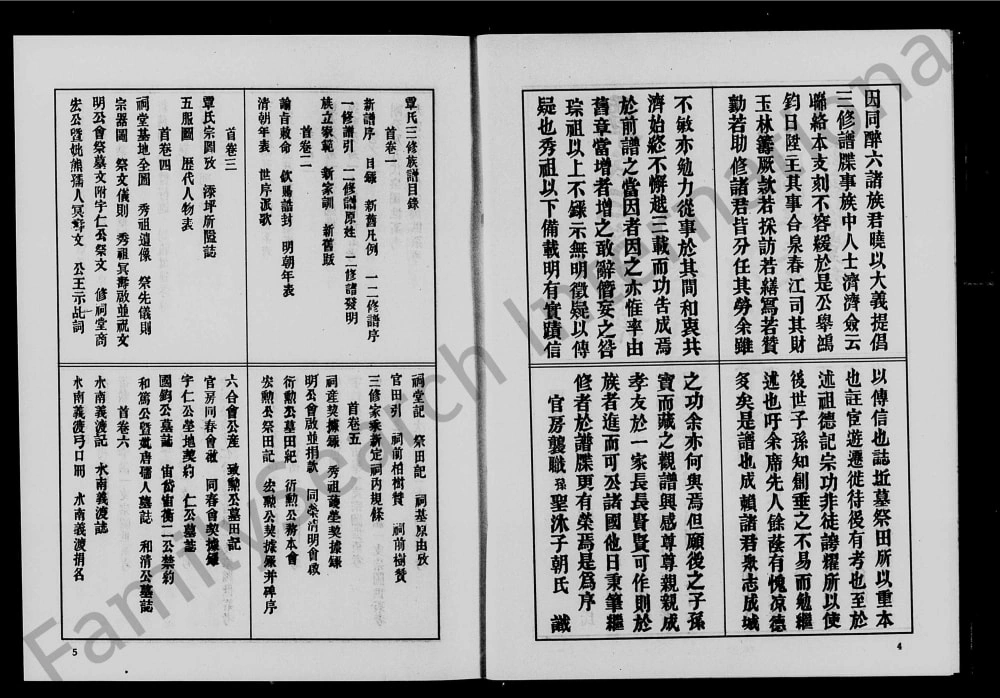 因同醉六諸族君曉以大義提倡
三修譜牒事族中人士濟濟僉云
聯絡本支刻不容緩於是公舉鴻
鈞日陞王其事合泉春江司其財
玉林籌厥款若採訪若繕寫若贊
勷若助修諸君皆分任其勞余雖
不敏亦勉力從事於其間和衷共
濟始終不懈越三載而功告成焉
於前譜之當因者因之亦惟率由
舊章當增者增之敢辭僭妄之咎
琮祖以上不錄示無明徵疑以傳
疑也秀祖以下備載明有實蹟信
以傳信也誌坵墓祭田所以重本
也註宦遊遷徙待後有考也至於
述祖德記宗功非徒誇耀所以使
後世子孫知創垂之不易而勉繼
述也吁余席先人餘蔭有愧凉德
灸矣是譜也成賴諸君衆志成城
之功余亦何與焉但願後之子孫
寶而藏之觀譜興感尊尊親親成
孝友於一家長長賢賢可作則於
族者進而可公諸國他日秉筆繼
修者於譜牒更有榮焉是為序
官房襲職孫聖沐子朝氏 識
4
覃氏三修族譜目錄
首卷一
新譜序 目錄 新舊凡例 一二修譜序
一修譜引 二修譜原姓 二修譜發明
族立家範 新家訓 新舊跋
首卷二
諭旨敕命 欽賜誥封 明朝年表
清朝年表 世序派歌
首卷三
覃氏宗圖攷 添坪所隘誌
五服圖 歷代人物表
首卷四
祠堂基地全圖 秀祖遺像 祭先儀則
宗器圖 祭文儀則 秀祖冥壽啟並祝文
明公會祭墓文附宇仁公祭文 修祠堂商
宏公暨妣熊孺人冥壽文 公王示乩詞
祠堂記 祭田記 祠基原由攷
官田引 祠前柏樹贊 祠前樹贊
三修家乘新定祠內規條
首卷五
祠産契據錄 秀祖護塋契據錄
明公會啟並捐款 同榮清明會啟
衍勳公墓田紀 衍勳公務本會
宏勳公祭田記 宏勳公契據錄并碑序
六合會公産 致勳公墓田記
官房同春會啟 同春會契據錄
宇仁公塋地契約 仁公墓誌
國鈞公墓誌 宙岱宙衡二公禁約
和籌公暨戴唐孺人墓誌 和清公墓誌
首卷六
水南義渡記 水南義渡誌
水南義渡弓口冊 水南義渡捐名
5
FamilySearch International